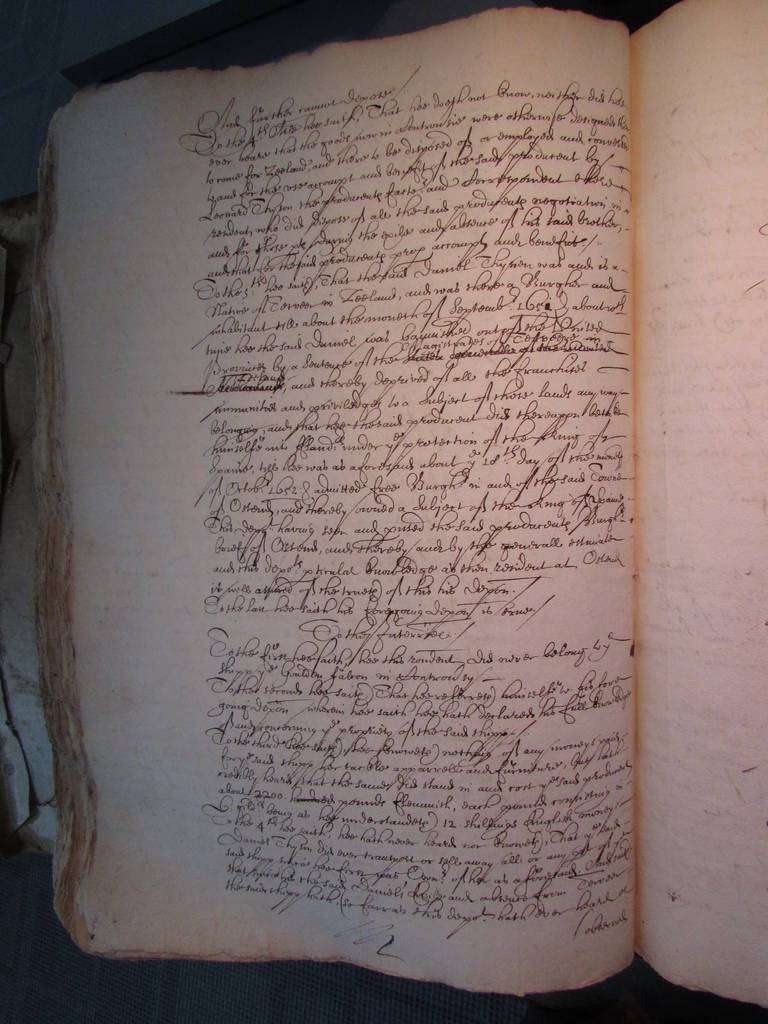 And further cannot depose./
To the 4th Arle hee saith, That hee doth not know, neither did hee
ever heare that the goods now in Controversie were otherwise designed then
to come for Zeeland, and there to be disposed of or employed and converted
to and for the use accompt and benefit of the said producent by
Leonard Thyson the producents Factor and Correspondent there
resident, who did dispose of all the said producents negotiation in
and for those pts during the exile and absence of his said brother,
and that for the said producents prop accompt and benefitt./
To the 5th hee saith, That the said Daniel Thyson was and is a
Native of Terveer in Zeeland, and was there a Burgher and
inhabitant till about the moneth of Septemb 1652, about wch
tyme hee the said Daniel was bannished out of the United
Provinces by a Sentence of the Magistrates of Terveere in
Zeeland, and thereby deprived of all the franchises
immunities and priviledges to a Subject of those lands any way
belonging, and that hee the said producent did thereupon betake
himselfe into Flandrs under ye protection of the King of
Spaine, till hee was as aforesaid about ye 18th day of the moneth
of Octobr 1652 admitted free Burghr in and of the said Towne
of Ostend, and thereby owned a Subject of the King of Spaine
This depot having seen and pused the said producents Burghr
brief of Ostend, and thereby and by the generall estimate
and this depots pticular knowledge as then resident at Ostend
is well assured of the truth of this his depon.
To the last hee saith his foregoing depon is true./
To the Interries./
To the first hee saith, hee this rendent did never belong to ye
shipp ye Golden Falcon in Controversy
To the second hee saith, That hee referreth himselfe to his fore
going depon wherein hee saith hee hath declared his full knowledge
of and concerning ye propriety of the said shipp./
To the third hee saith, hee knoweth nothing of any moneys paid
for ye said shipp her tackle apparrell and furniture, but hath
credibly heard, that the same did stand in and cost ye said producent
about 2200 pounds flemmish, each pound consisting in
being as hee understandeth 12 shillings English money
To the 4th hee saith, hee hath never heard nor knoweth, That ye said
Daniel Thyson did ever transport or sell away all or any pt of ye
said shipp since hee first was Owner of her as aforesaid. And saith
that since his the said Daniels Exile and absence from Terveer
the said shipp hath, (so farr as this depot hath ever heard or
observed